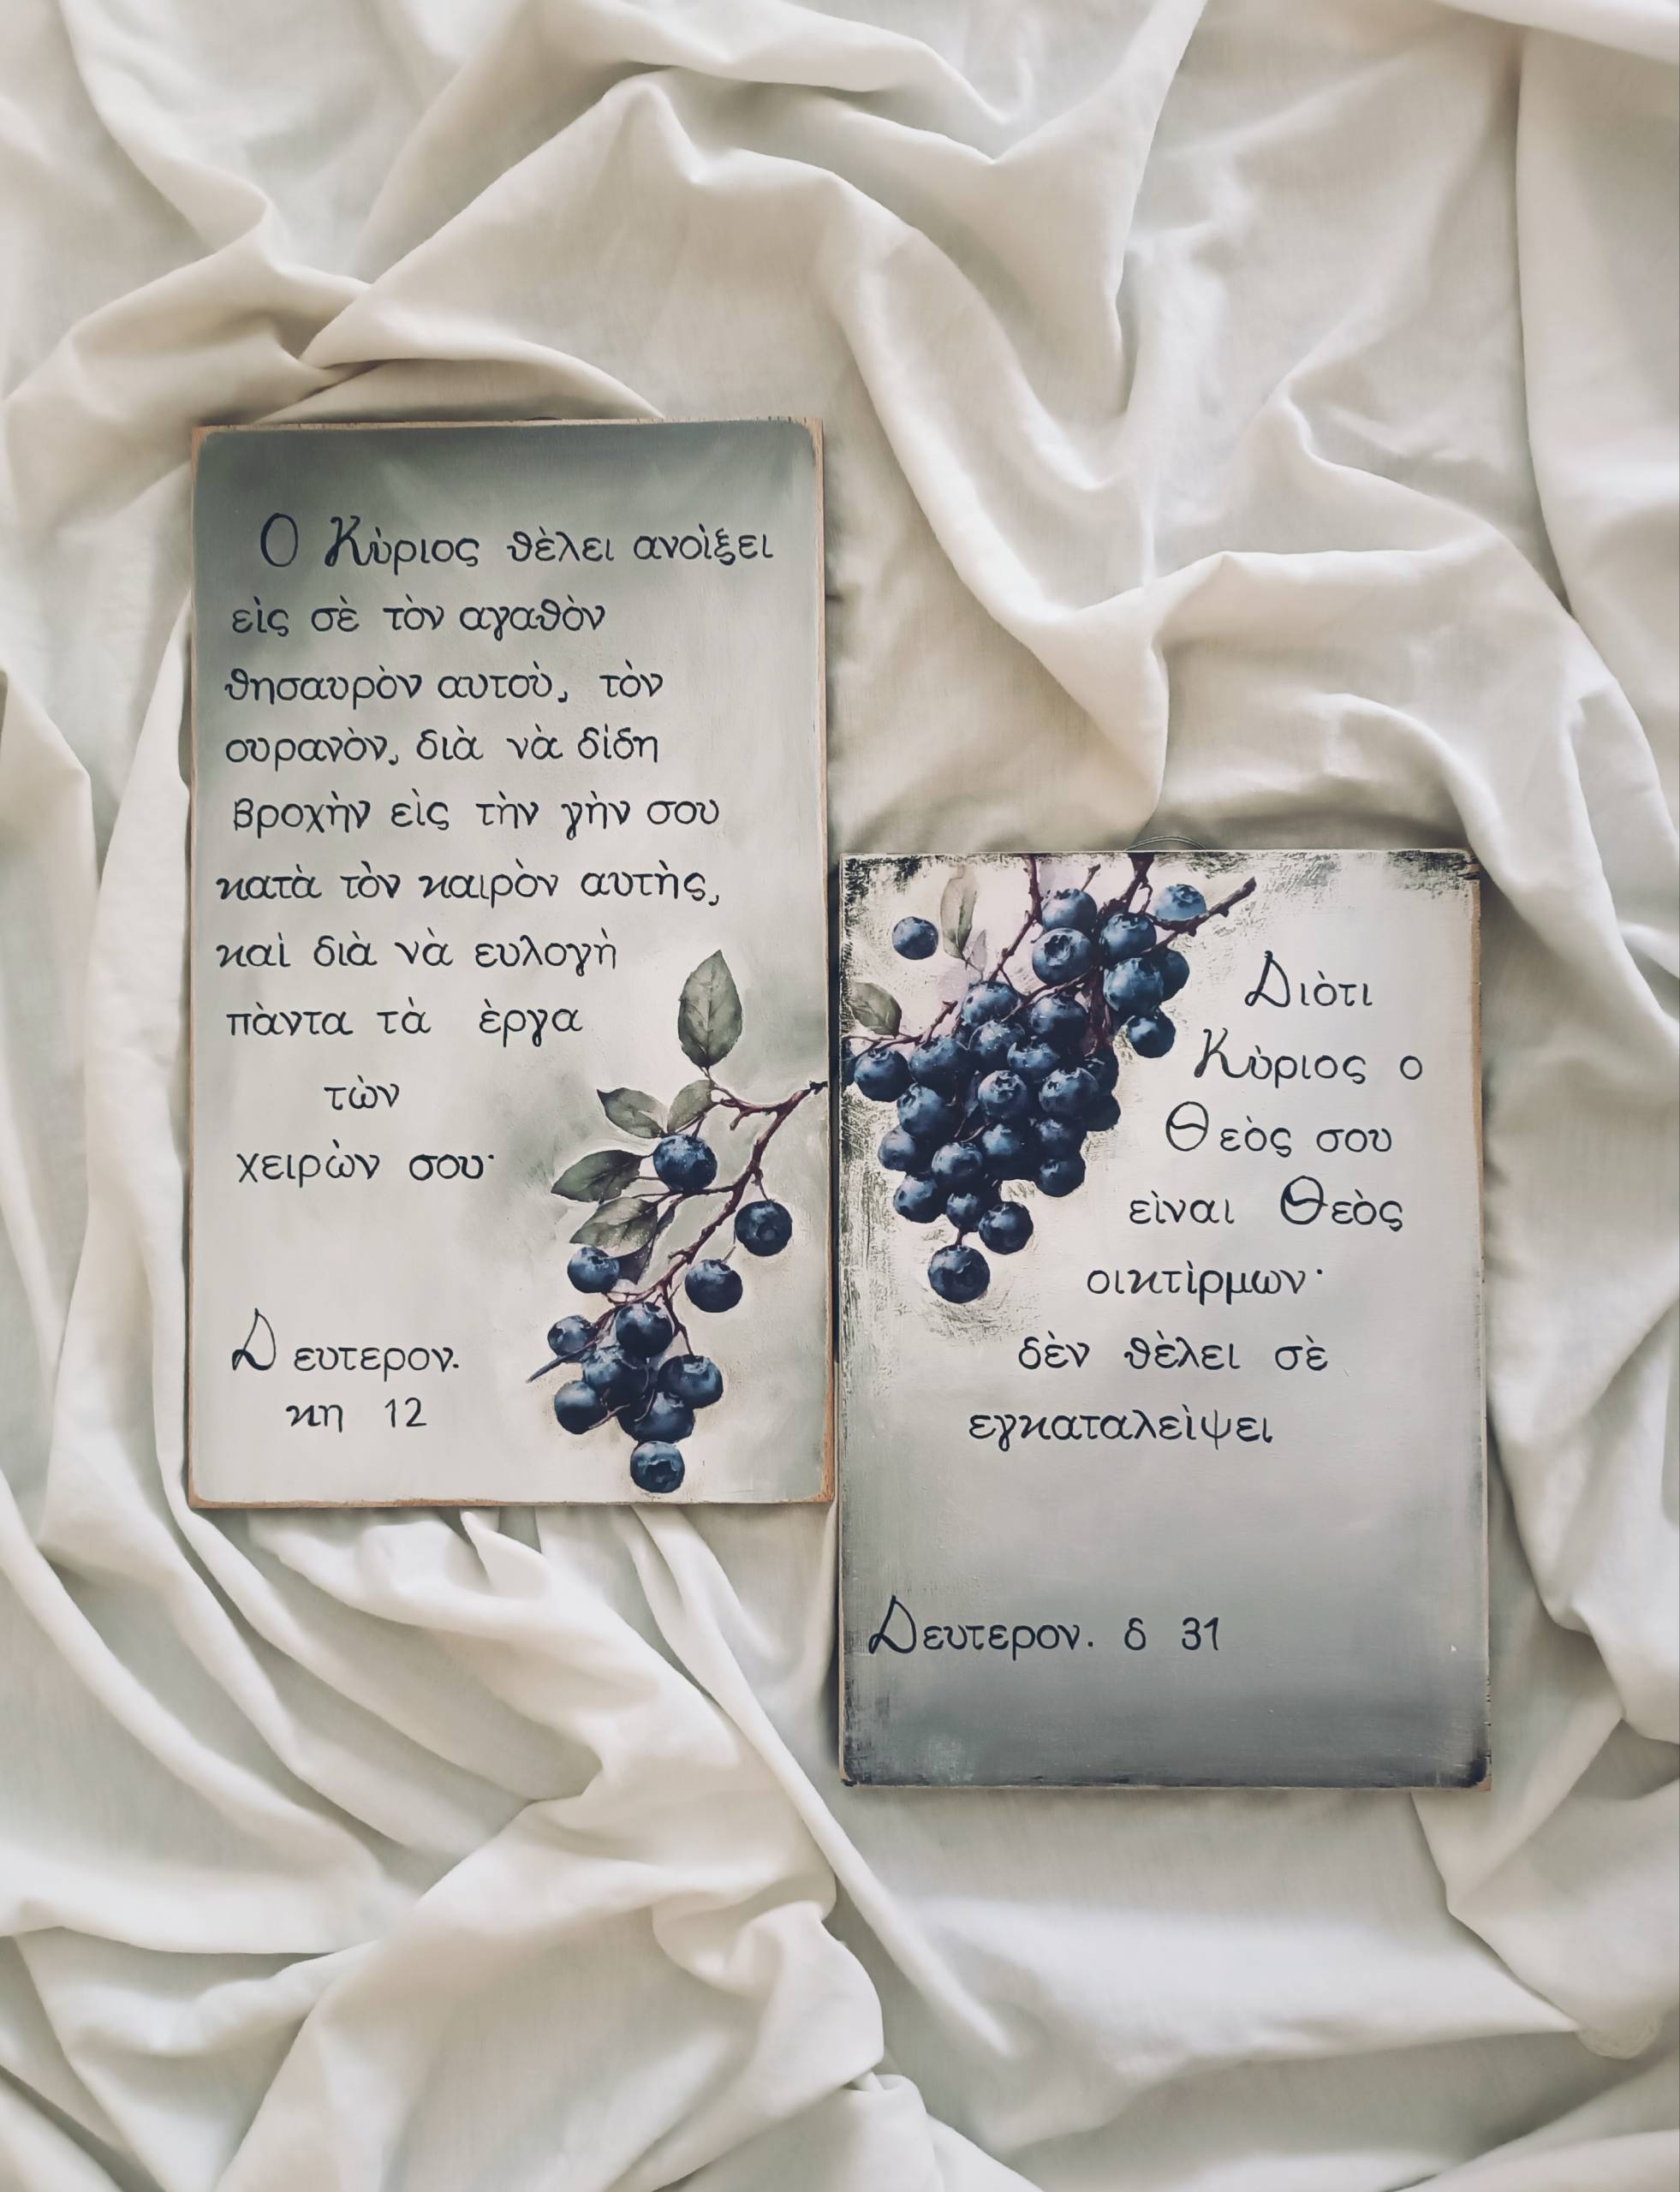 Ο Κὺριος θὲλει ανοὶξει
εὶς σὲ τὸν αγαθὸν
θησαυρὸν αυτοὺ, τὸν
ουρανὸν, διὰ νὰ δὶδη
βροχὴν εὶς τὴν γὴν σου
κατὰ τὸν καιρὸν αυτὴς,
καὶ διὰ νὰ ευλογὴ
πὰντα τὰ ὲργα
τὼν
χειρὼν σου·
Δευτερον.
κη 12
Διὸτι
Κὺριος ο
Θεὸς σου
εὶναι Θεὸς
οικτὶρμων·
δὲν θὲλει σὲ
εγκαταλεὶψει
Δευτερον. δ 31